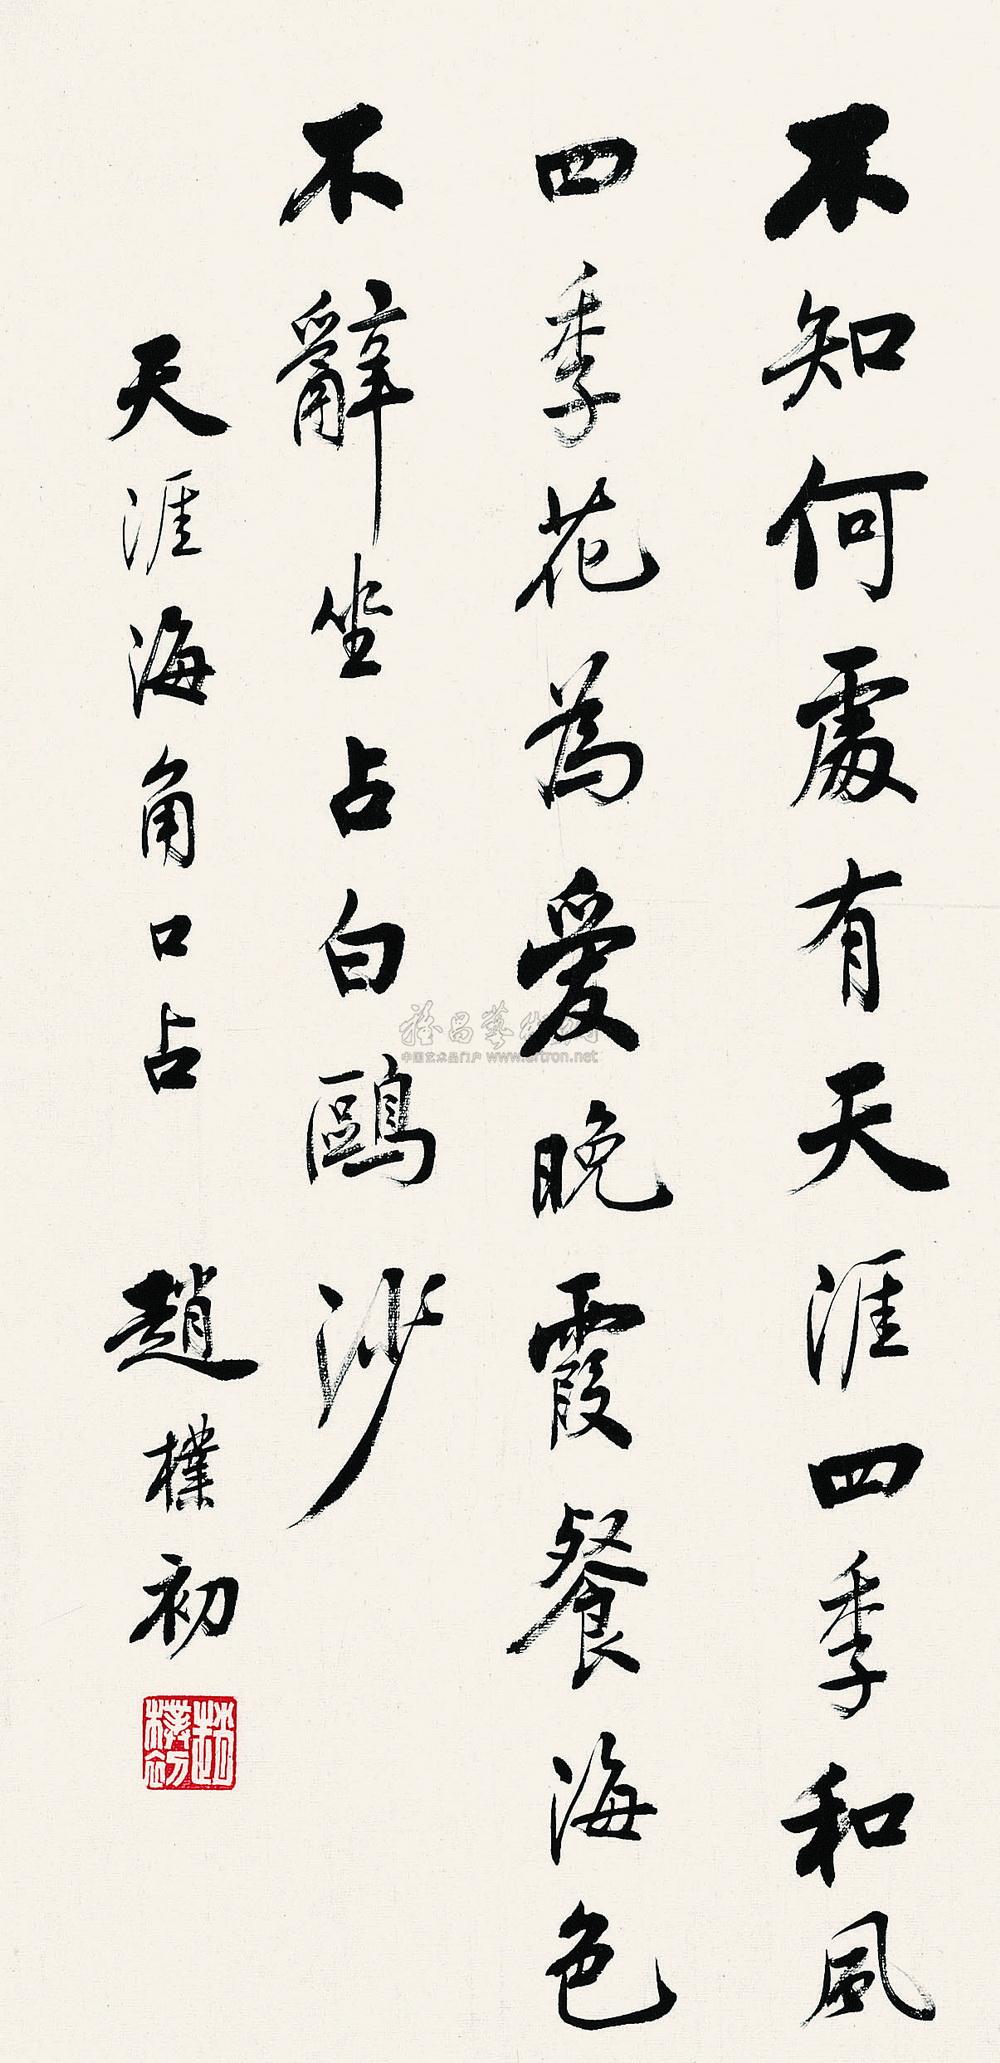 不知何處有天涯四季和風
四季花為愛晚霞餐海色
不辭坐占白鷗沙
天涯海角口占 趙樸初
趙樸初
中国艺术品门户 www.artron.net